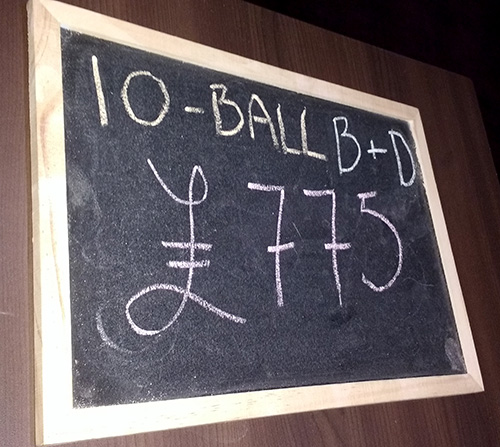 10-BALL B+D
£775